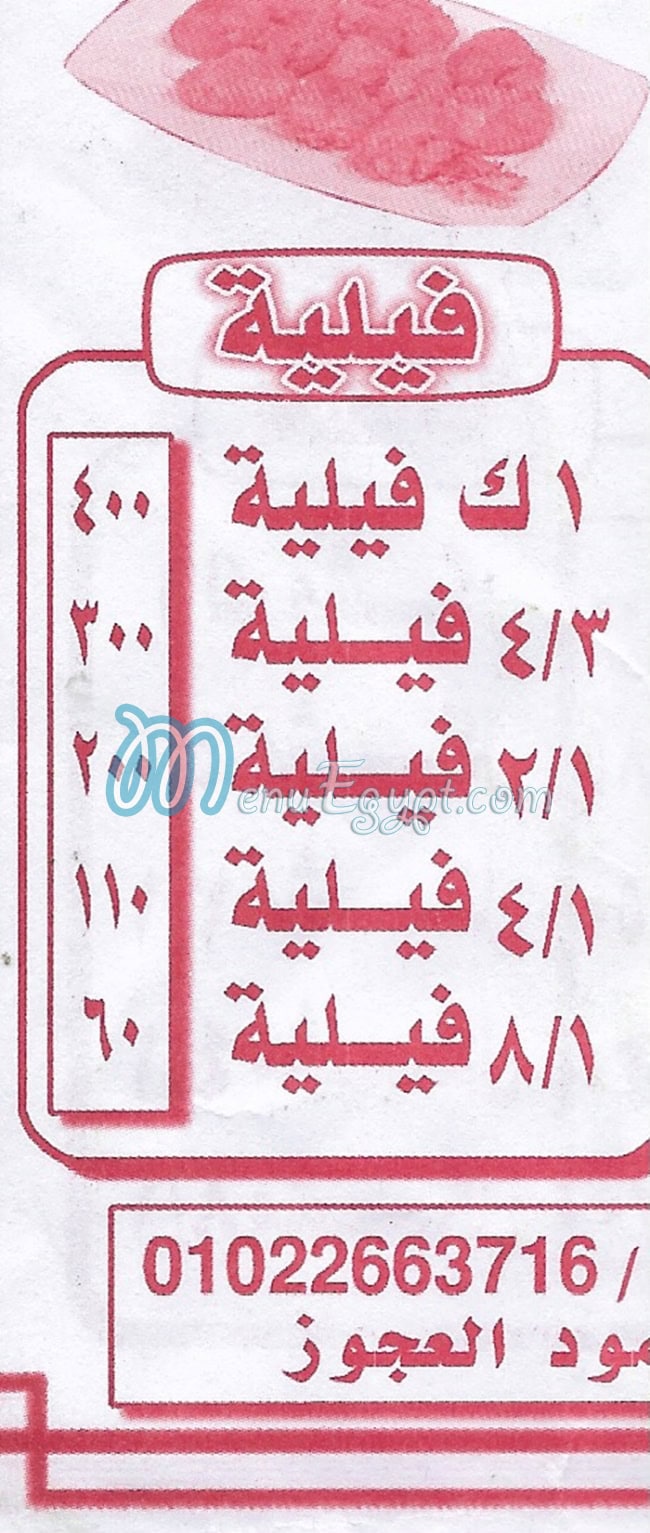 فيلية
١ ك فيلية ٤٠٠
٤/٣ فيلية ٣٠٠
٢/١ فيلية ٢٠٠
MenuEgypt.com
٤/١ فيلية ١١٠
٨/١ فيلية ٦٠
/ 01022663716
العجوز